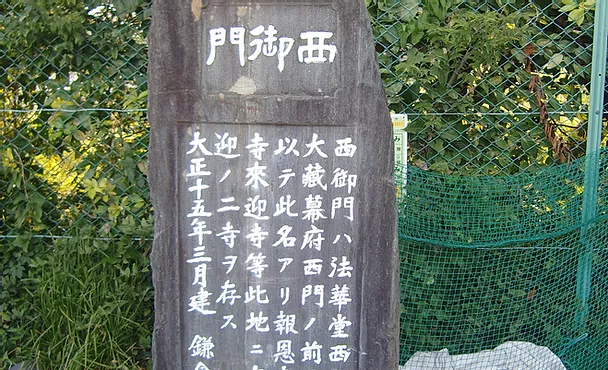 西御門
西御門ハ法華堂西
大藏幕府西門ノ前
以テ此名アリ報恩
寺來迎寺等此地ニ
迎ノ二寺ヲ存ス
大正十五年三月建 鎌